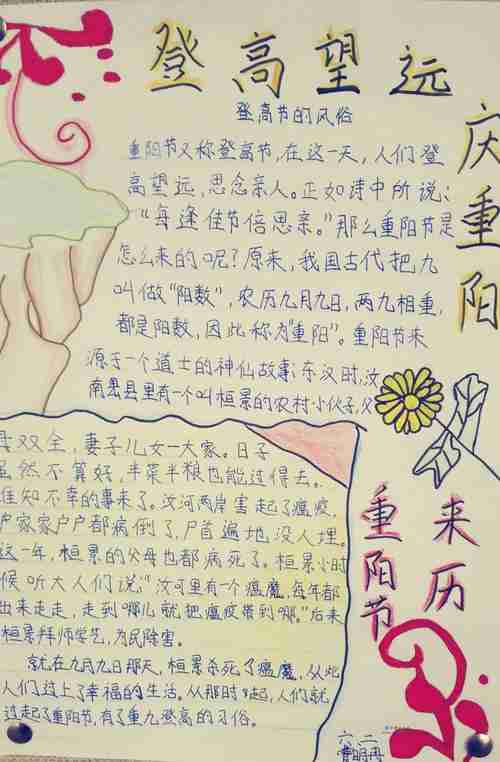 登高望远
庆重阳
登高节的风俗
重阳节又称登高节,在这一天,人们登
高望远,思念亲人。正如诗中所说:
“每逢佳节倍思亲。”那么重阳节是
怎么来的呢?原来,我国古代把九
叫做“阳数”,农历九月九日,两九相重,
都是阳数,因此称为“重阳”。重阳节来
源于一个道士的神仙故事:东汉时,汝
南县里有一个叫桓景的农村小伙子,父
母双全,妻子儿女一大家。日子
虽然不算好,半菜半粮也能过得去。
谁知不幸的事来了。汝河两岸害起了瘟疫,
户家家户户都病倒了,尸首遍地,没人埋。
这一年,桓景的父母也都病死了。桓景小时
候听大人们说:“汝河里有一个瘟魔,每年都
出来走走,走到哪儿就把瘟疫带到哪。”后来
桓景拜师学艺,为民除害。
就在九月九日那天,桓景杀死了瘟魔,从此
人们过上了幸福的生活。从那时起,人们就
过起了重阳节,有了重九登高的习俗。
重阳节
来历
六.二